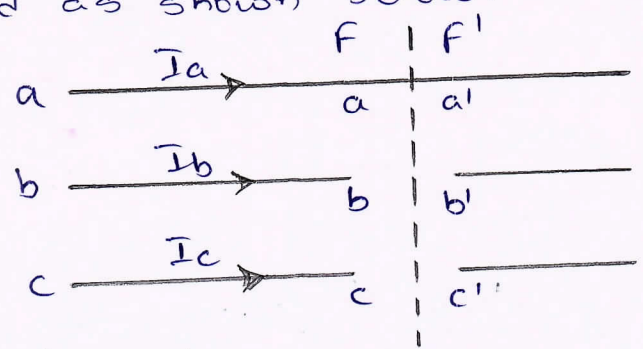 as shown
F F'
Ia
a a a'
Ib
b b b'
Ic
c c c'